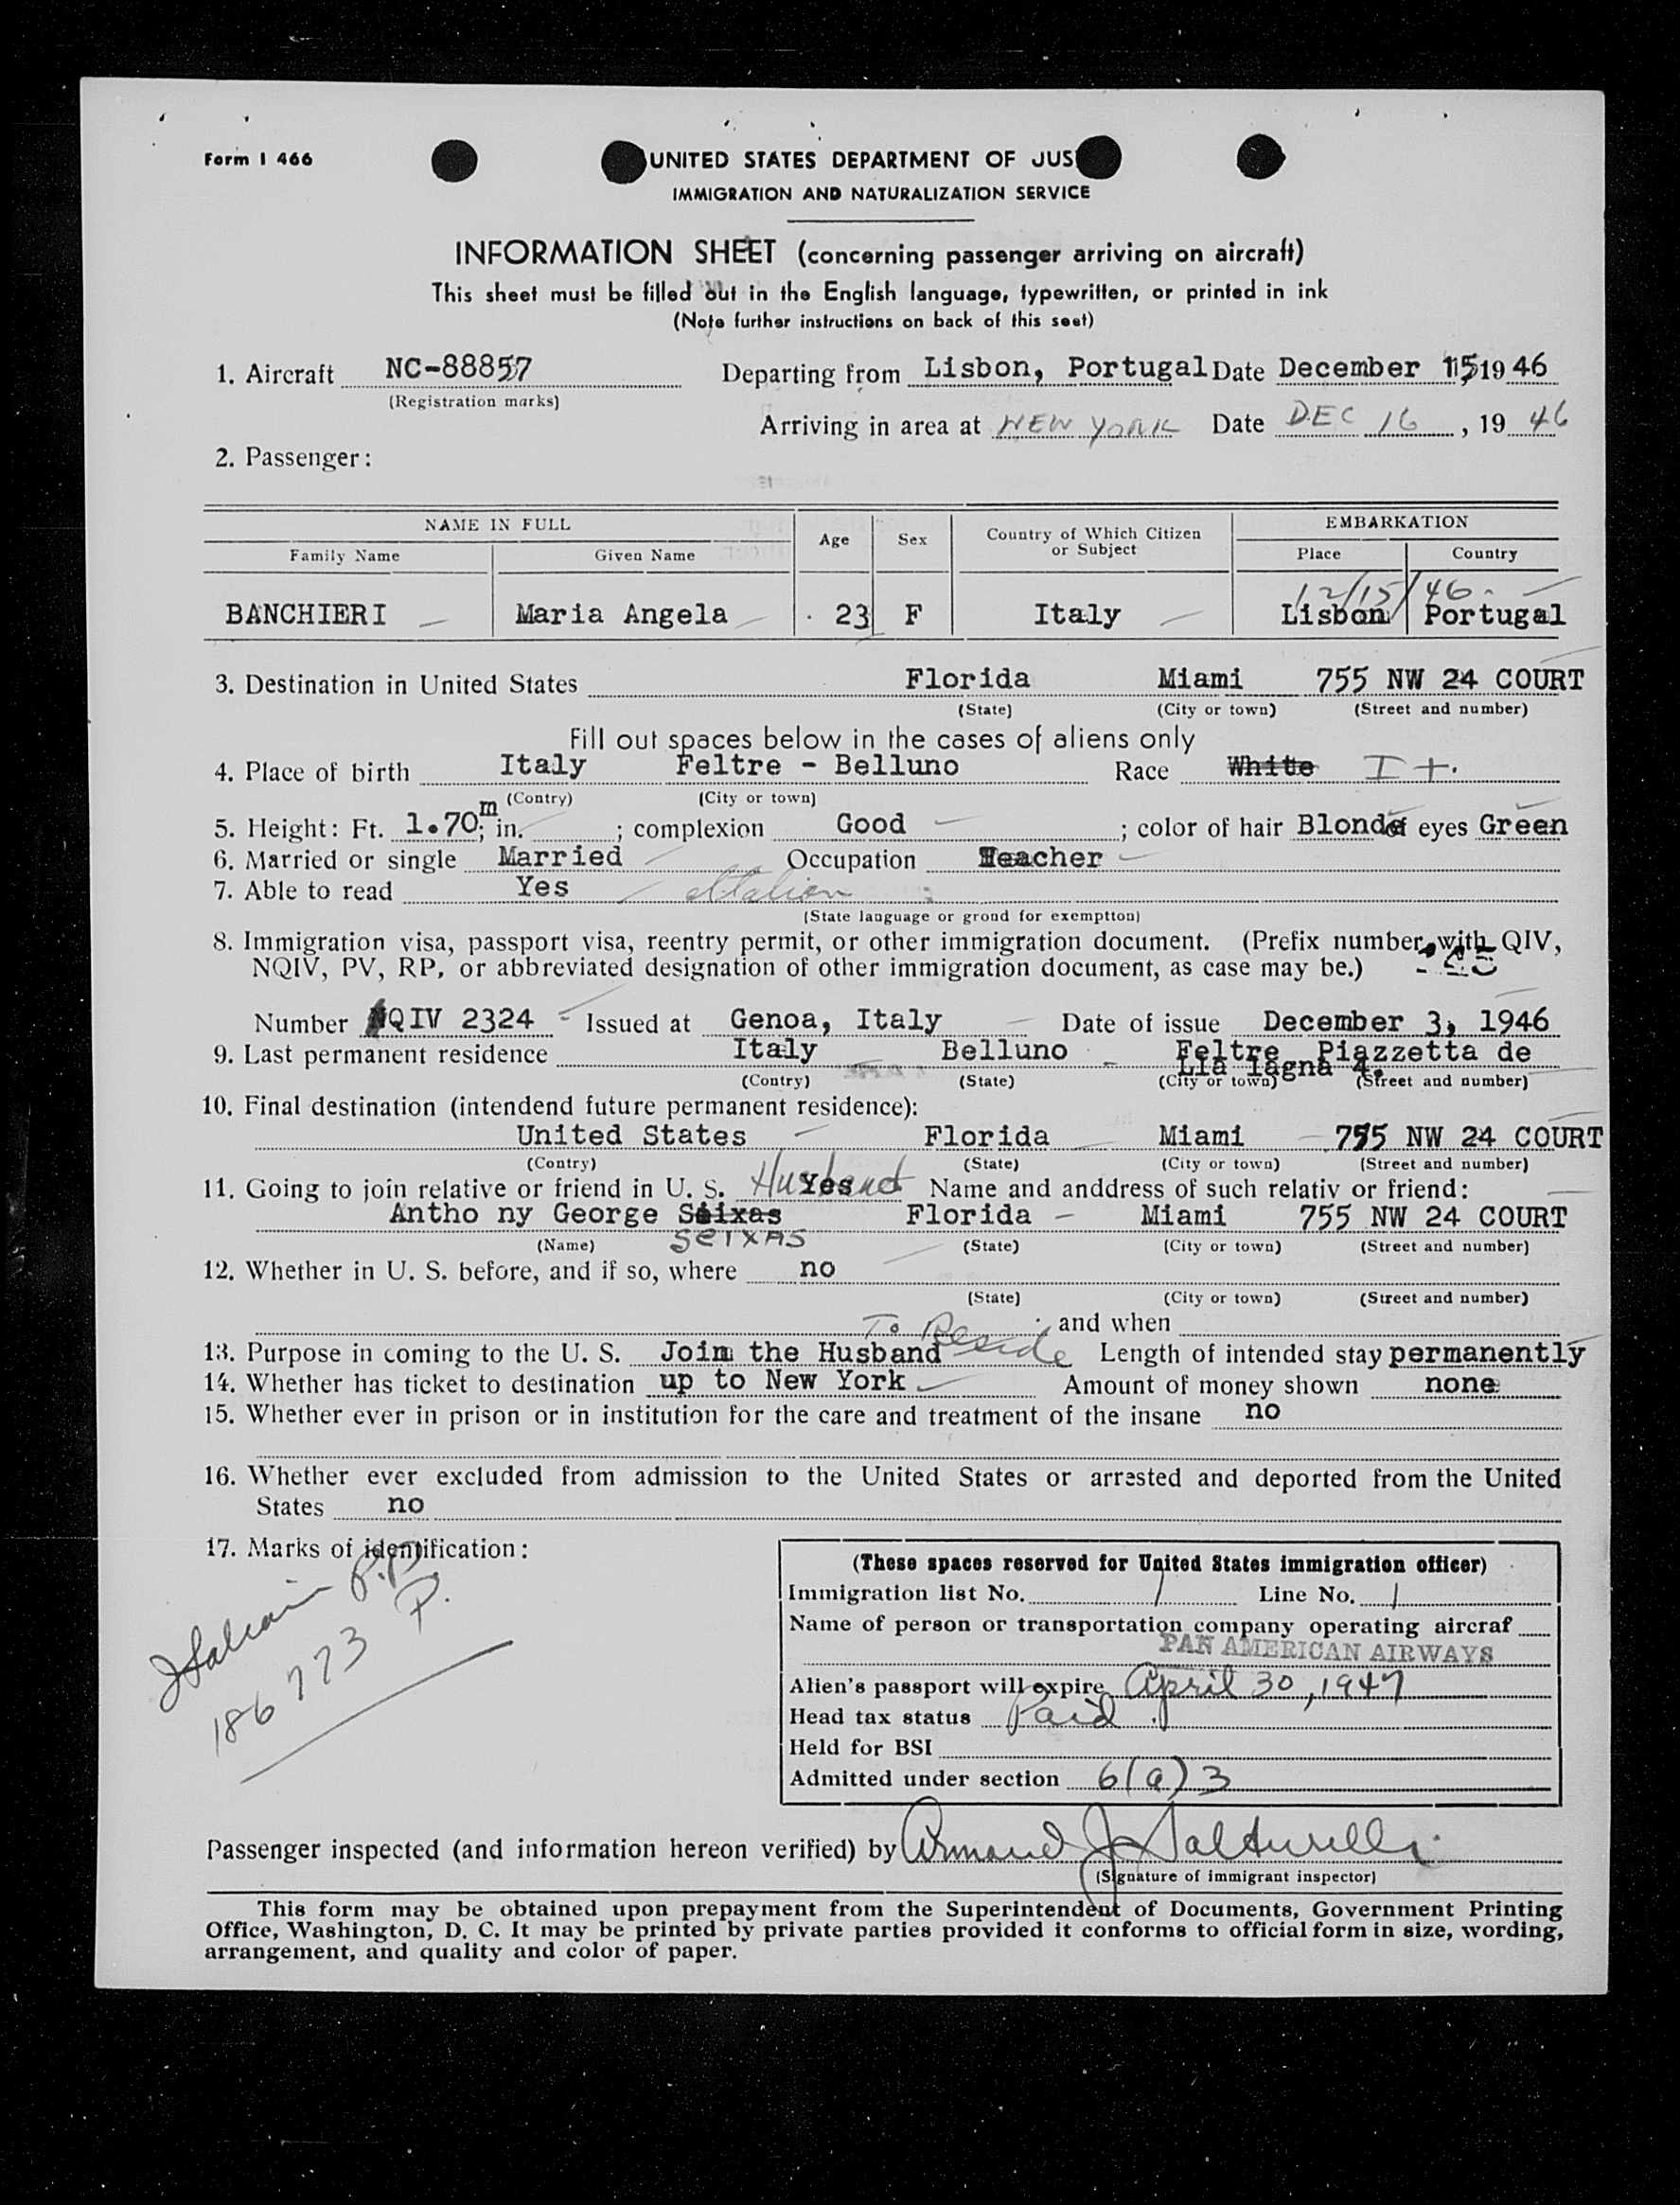 Form I 466
UNITED STATES DEPARTMENT OF JUS
IMMIGRATION AND NATURALIZATION SERVICE
INFORMATION SHEET (concerning passenger arriving on aircraft)
This sheet must be filled out in the English language, typewritten, or printed in ink
(Note further instructions on back of this seet)
1. Aircraft NC-88857 Departing from Lisbon, Portugal Date December 15 1946
(Registration marks)
Arriving in area at NEW YORK Date DEC 16, 1946
2. Passenger:
NAME IN FULL Age Sex Country of Which Citizen or Subject EMBARKATION
Family Name Given Name Place Country
12/15/46.
BANCHIERI Maria Angela 23 F Italy Lisbon Portugal
3. Destination in United States Florida Miami 755 NW 24 COURT
(State) (City or town) (Street and number)
Fill out spaces below in the cases of aliens only
4. Place of birth Italy Feltre - Belluno Race White It.
(Contry) (City or town)
5. Height: Ft. 1.70 m; in. ; complexion Good ; color of hair Blonde eyes Green
6. Married or single Married Occupation Teacher
7. Able to read Yes Italian
(State lauguage or grond for exemptton)
8. Immigration visa, passport visa, reentry permit, or other immigration document. (Prefix number with QIV,
NQIV, PV, RP, or abbreviated designation of other immigration document, as case may be.)
Number QIV 2324 Issued at Genoa, Italy Date of issue December 3, 1946
9. Last permanent residence Italy Belluno Feltre Piazzetta de
Lia lagna 4.
(Contry) (State) (City or town) (Street and number)
10. Final destination (intendend future permanent residence):
United States Florida Miami 755 NW 24 COURT
(Contry) (State) (City or town) (Street and number)
11. Going to join relative or friend in U. S. Yes Husband Name and anddress of such relativ or friend:
Antho ny George Seixas Florida - Miami 755 NW 24 COURT
(Name) SeIXAS (State) (City or town) (Street and number)
12. Whether in U. S. before, and if so, where no
(State) (City or town) (Street and number)
To Reside and when
13. Purpose in coming to the U. S. Join the Husband Length of intended stay permanently
14. Whether has ticket to destination up to New York Amount of money shown none
15. Whether ever in prison or in institution for the care and treatment of the insane no
16. Whether ever excluded from admission to the United States or arrested and deported from the United
States no
17. Marks of identification:
Italian P.P.
186773 P.
(These spaces reserved for United States immigration officer)
Immigration list No. 1 Line No. 1
Name of person or transportation company operating aircraf
PAN AMERICAN AIRWAYS
Alien's passport will expire April 30, 1947
Head tax status Paid
Held for BSI
Admitted under section 6(a)3
Passenger inspected (and information hereon verified) by Armand J.
(Signature of immigrant inspector)
This form may be obtained upon prepayment from the Superintendent of Documents, Government Printing
Office, Washington, D. C. It may be printed by private parties provided it conforms to official form in size, wording,
arrangement, and quality and color of paper.